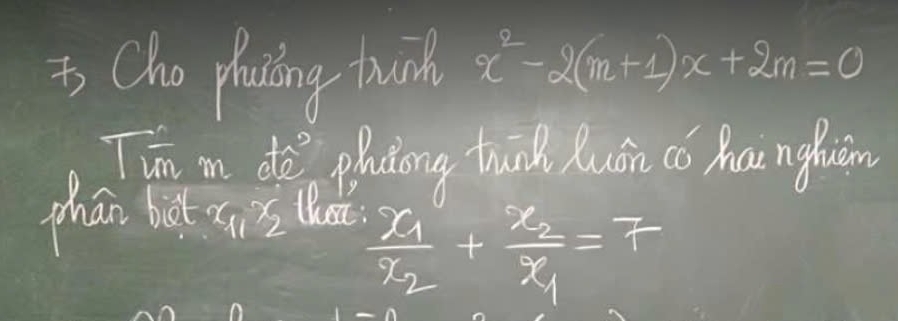 7, Cho phương trình x² - 2(m+1)x + 2m = 0
Tìm m để phương trình luôn có hai nghiệm
phân biệt x₁, x₂ thoả: x₁/x₂ + x₂/x₁ = 7